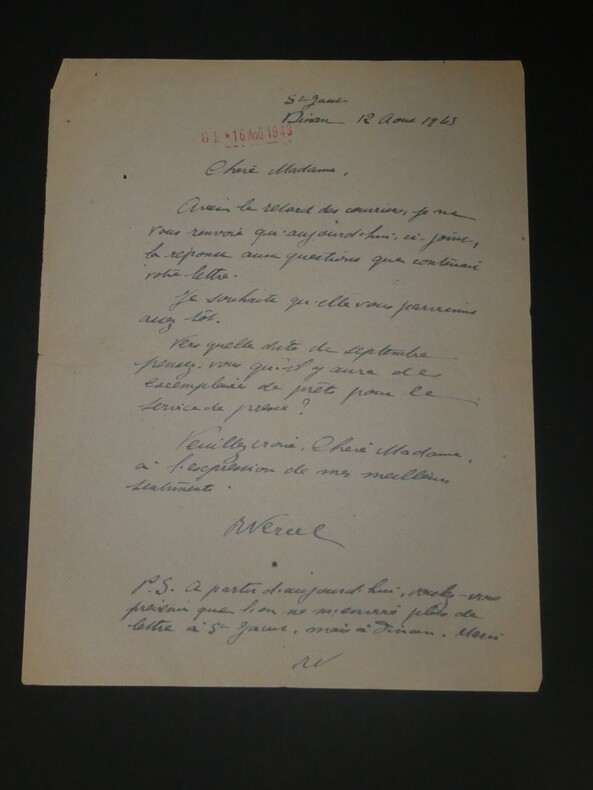 St Jacut
Dinan 12 Aout 1943
01 *16 AOU 1943
Chère Madame,
Avec le retard des courriers, je ne
vous renvoie qu'aujourd'hui, ci-joint,
la réponse aux questions que contenait
votre lettre.
Je souhaite qu'elle vous parvienne
assez tôt.
Vers quelle date de septembre
pensez-vous qu'il y aura des
exemplaires de prêts pour le
service de presse?
Veuillez croire, Chère Madame,
à l'expression de mes meilleurs
sentiments.
RVercel
P.S. A partir d'aujourd'hui, voulez-vous
prévenir que l'on ne m'envoie plus de
lettre à St Jacut, mais à Dinan. Merci
RV